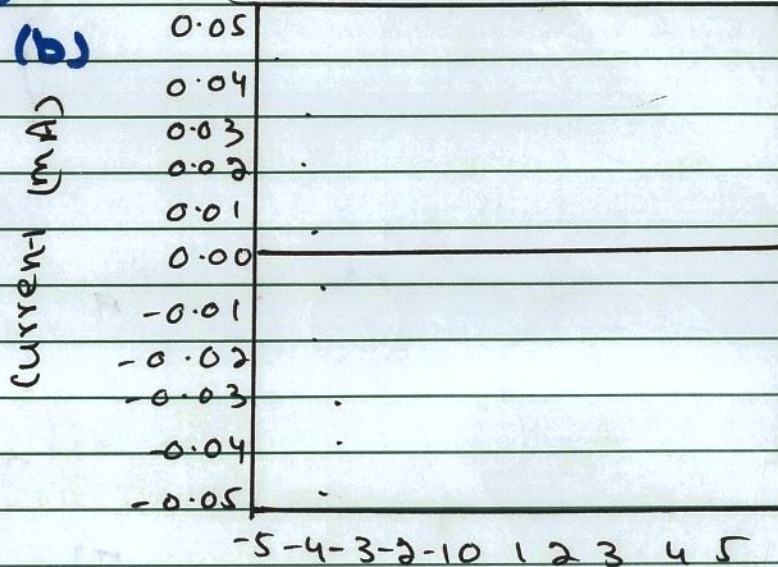 (b)
Current (mA)
0.05
0.04
0.03
0.02
0.01
0.00
-0.01
-0.02
-0.03
-0.04
-0.05
-5 -4 -3 -2 -1 0 1 2 3 4 5